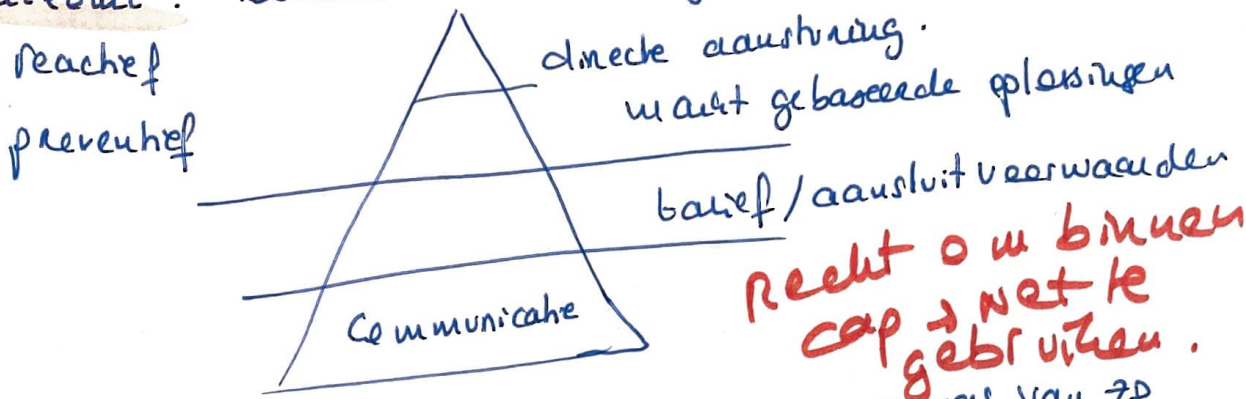 reactief
preventief
directe aansturing.
markt gebaseerde oplossingen
tarief/aansluitvoorwaarden
Communicatie
Recht om binnen
cap → net te
gebruiken.
van